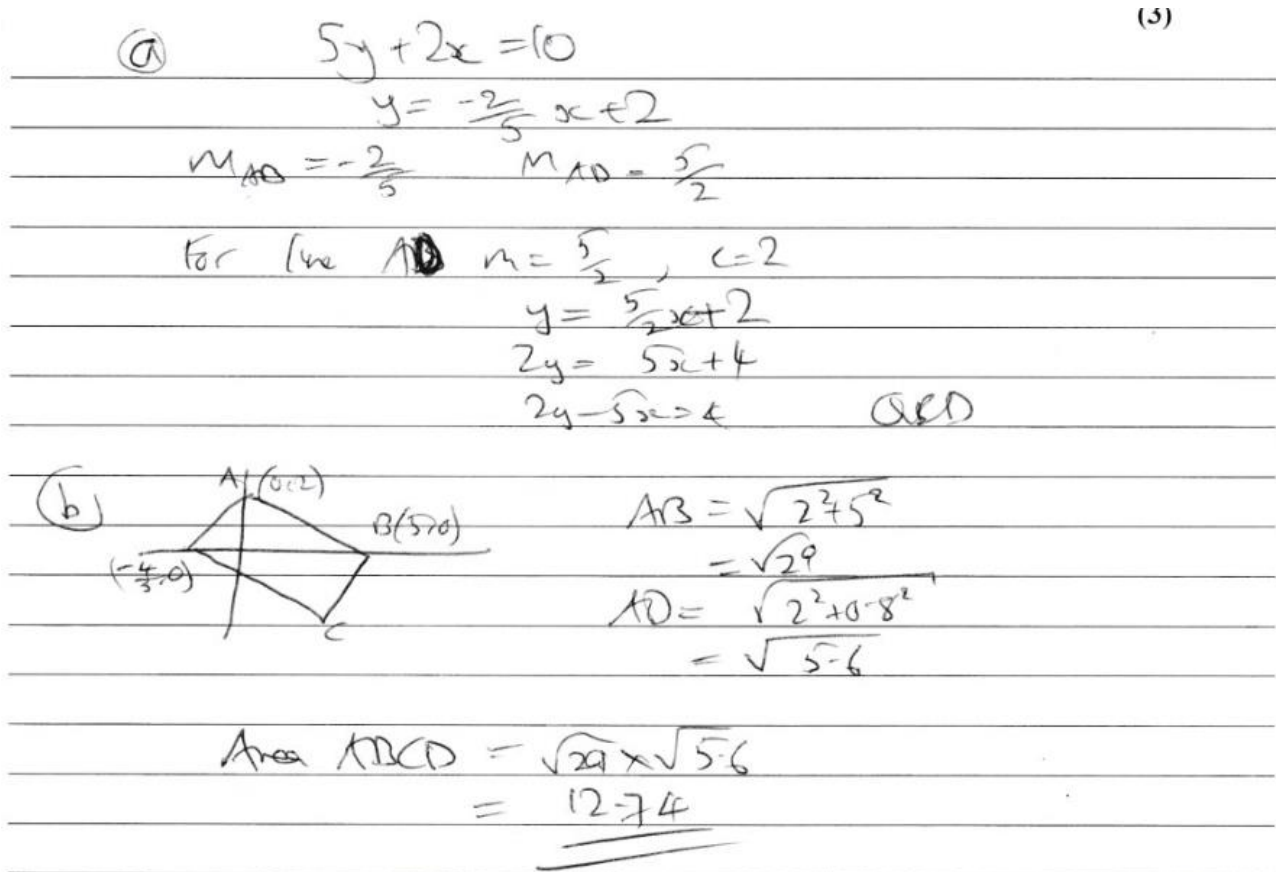 (3)
(a) 5y + 2x = 10
y = -2/5 x + 2
m_AB = -2/5 m_AD = 5/2
For line AD m = 5/2, c = 2
y = 5/2 x + 2
2y = 5x + 4
2y - 5x = 4 QED
(b) A (0,2) AB = √(2² + 5²)
B(5,0) = √29
(-4/5, 0) AD = √(2² + 0.8²)
C = √5.6
Area ABCD = √29 × √5.6
= 12.74